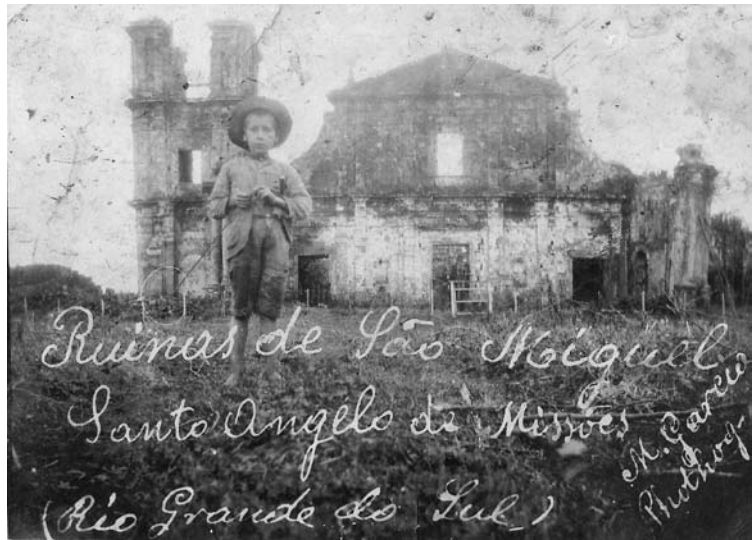 Ruinas de São Miguel
Santo Angelo de Missões
(Rio Grande do Sul)
M. Garcia
Phothog.